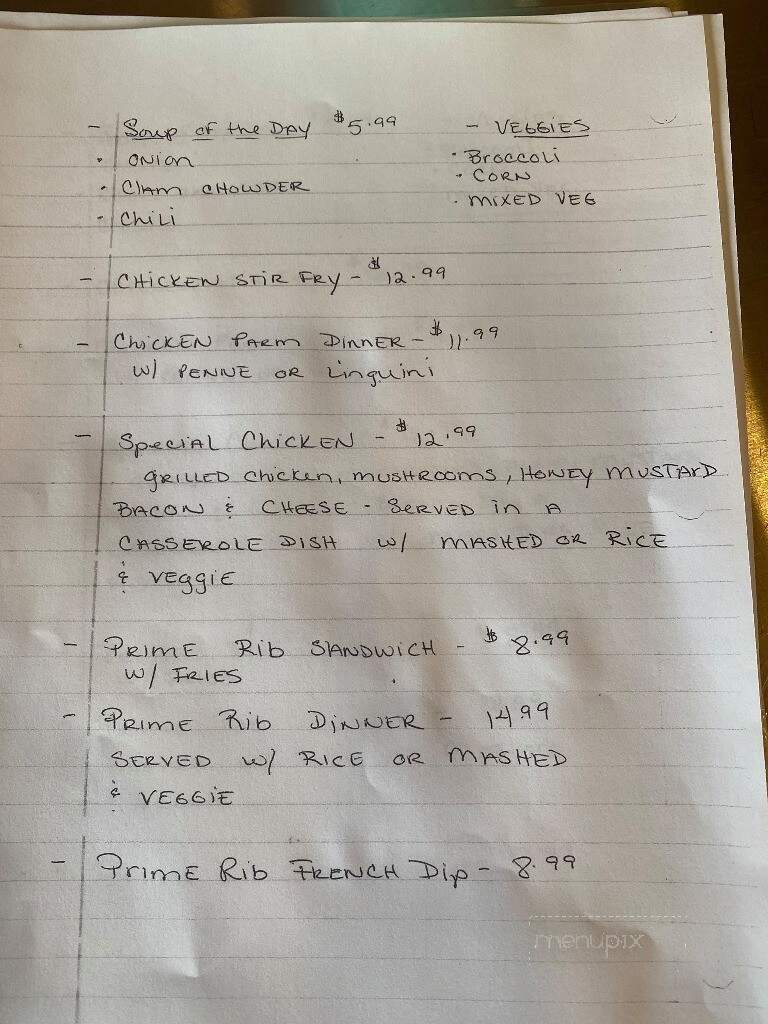 - Soup of the DAY $5.99
• ONION
• Clam CHOWDER
• Chili
- VEGGIES
• Broccoli
• CORN
• MIXED VEG
- CHICKEN STIR FRY - $12.99
- ChicKEN PARM DINNER - $11.99
W/ PENNE OR Linguini
- Special Chicken - $12.99
GRILLED Chicken, MUSHROOMS, HONEY MUSTARD
BACON & CHEESE - SERVED in A
CASSEROLE DISH W/ MASHED OR RICE
& Veggie
- PRIME Rib SANDWICH - $8.99
W/ FRIES
- PRIME Rib DINNER - 14.99
SERVED W/ RICE OR MASHED
& VEGGIE
- Prime Rib FRENCH Dip - 8.99
menupix